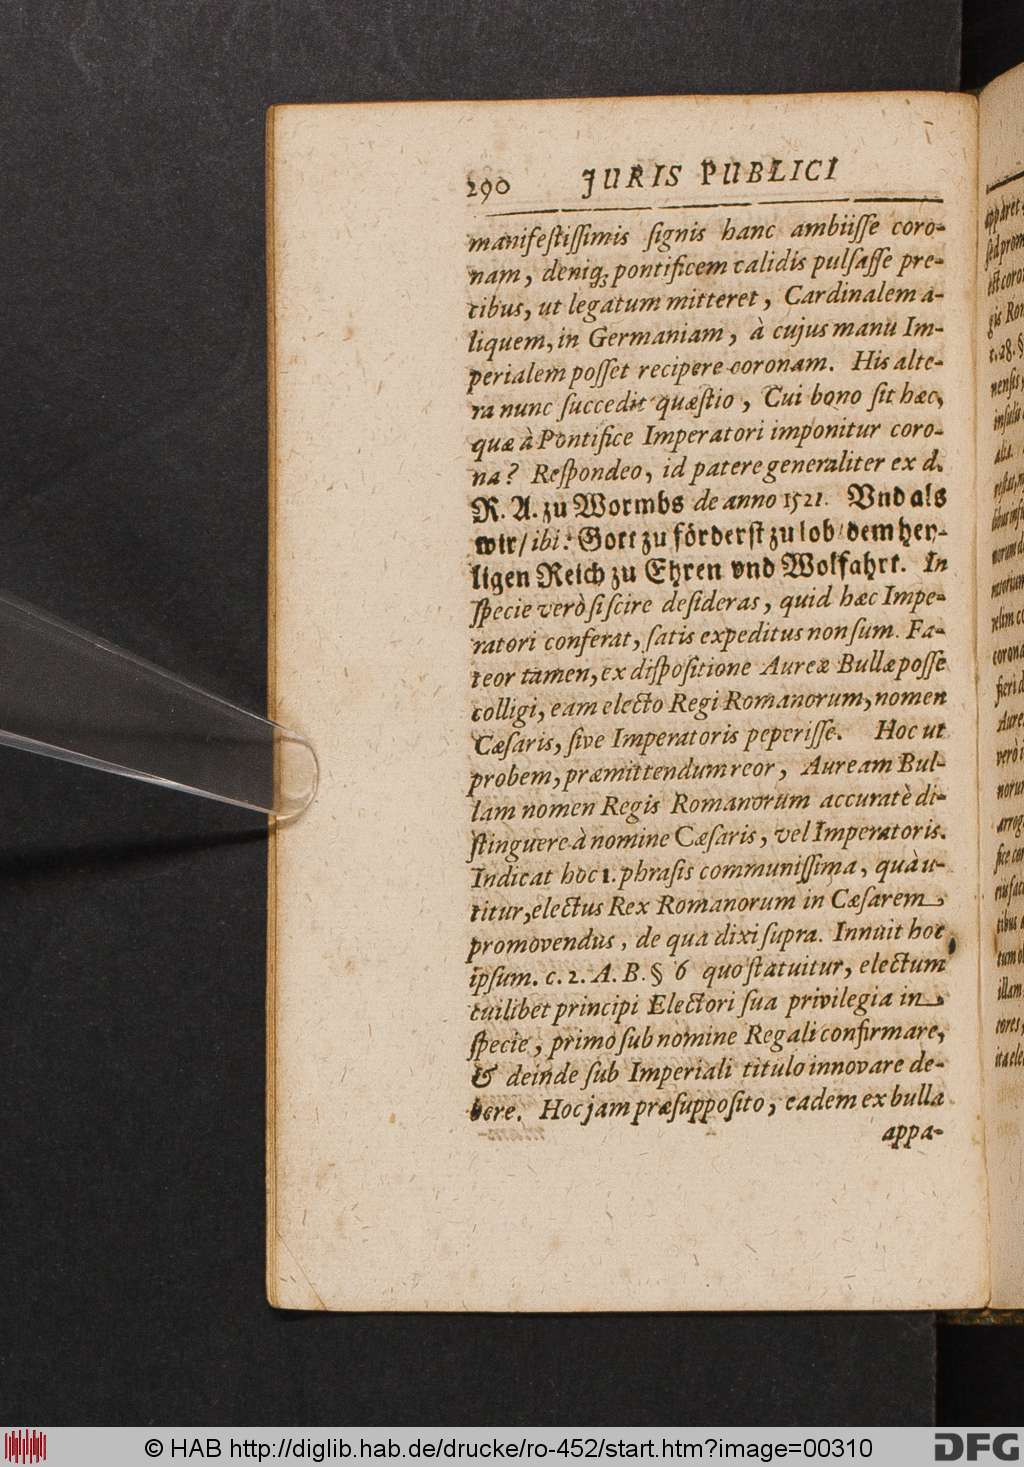 290 JURIS PUBLICI
manifeſtiſſimis ſignis hanc ambiiſſe coro-
nam, deniq; pontificem calidis pulſaſſe pre-
cibus, ut legatum mitteret, Cardinalem a-
liquem, in Germaniam, à cujus manu Im-
perialem poſſet recipere coronam. His alte-
ra nunc ſuccedit quæſtio, Cui bono ſit hæc,
quæ à Pontifice Imperatori imponitur coro-
na? Reſpondeo, id patere generaliter ex d.
R. A. zu Wormbs de anno 1521. Vnd als
wir / ibi: Gott zu förderſt zu lob / dem hey-
ligen Reich zu Ehren vnd Wolfahrt. In
ſpecie verò ſi ſcire deſideras, quid hæc Impe-
ratori conferat, ſatis expeditus non ſum. Fa-
teor tamen, ex diſpoſitione Aureæ Bullæ poſſe
colligi, eam electo Regi Romanorum, nomen
Cæſaris, ſive Imperatoris peperiſſe. Hoc ut
probem, præmittendum reor, Auream Bul-
lam nomen Regis Romanorum accuratè di-
ſtinguere à nomine Cæſaris, vel Imperatoris.
Indicat hoc 1. phraſis communiſſima, quâ u-
titur, electus Rex Romanorum in Cæſarem
promovendus, de qua dixi ſupra. Innuit hoc
ipſum. c. 2. A. B. § 6 quo ſtatuitur, electum
cuilibet principi Electori ſua privilegia in
ſpecie, primo ſub nomine Regali confirmare,
& deinde ſub Imperiali titulo innovare de-
bere. Hoc jam præſuppoſito, eadem ex bulla
appa-
apparet
ſed prom
eſt coro
gis Ro
c. 28. §
nenſis
inſula
alta.
corona
fieri d
Aure
verò i
norum
arrog
fice co
tibus
tum o
illam
tores,
ita ele
© HAB http://diglib.hab.de/drucke/ro-452/start.htm?image=00310
DFG